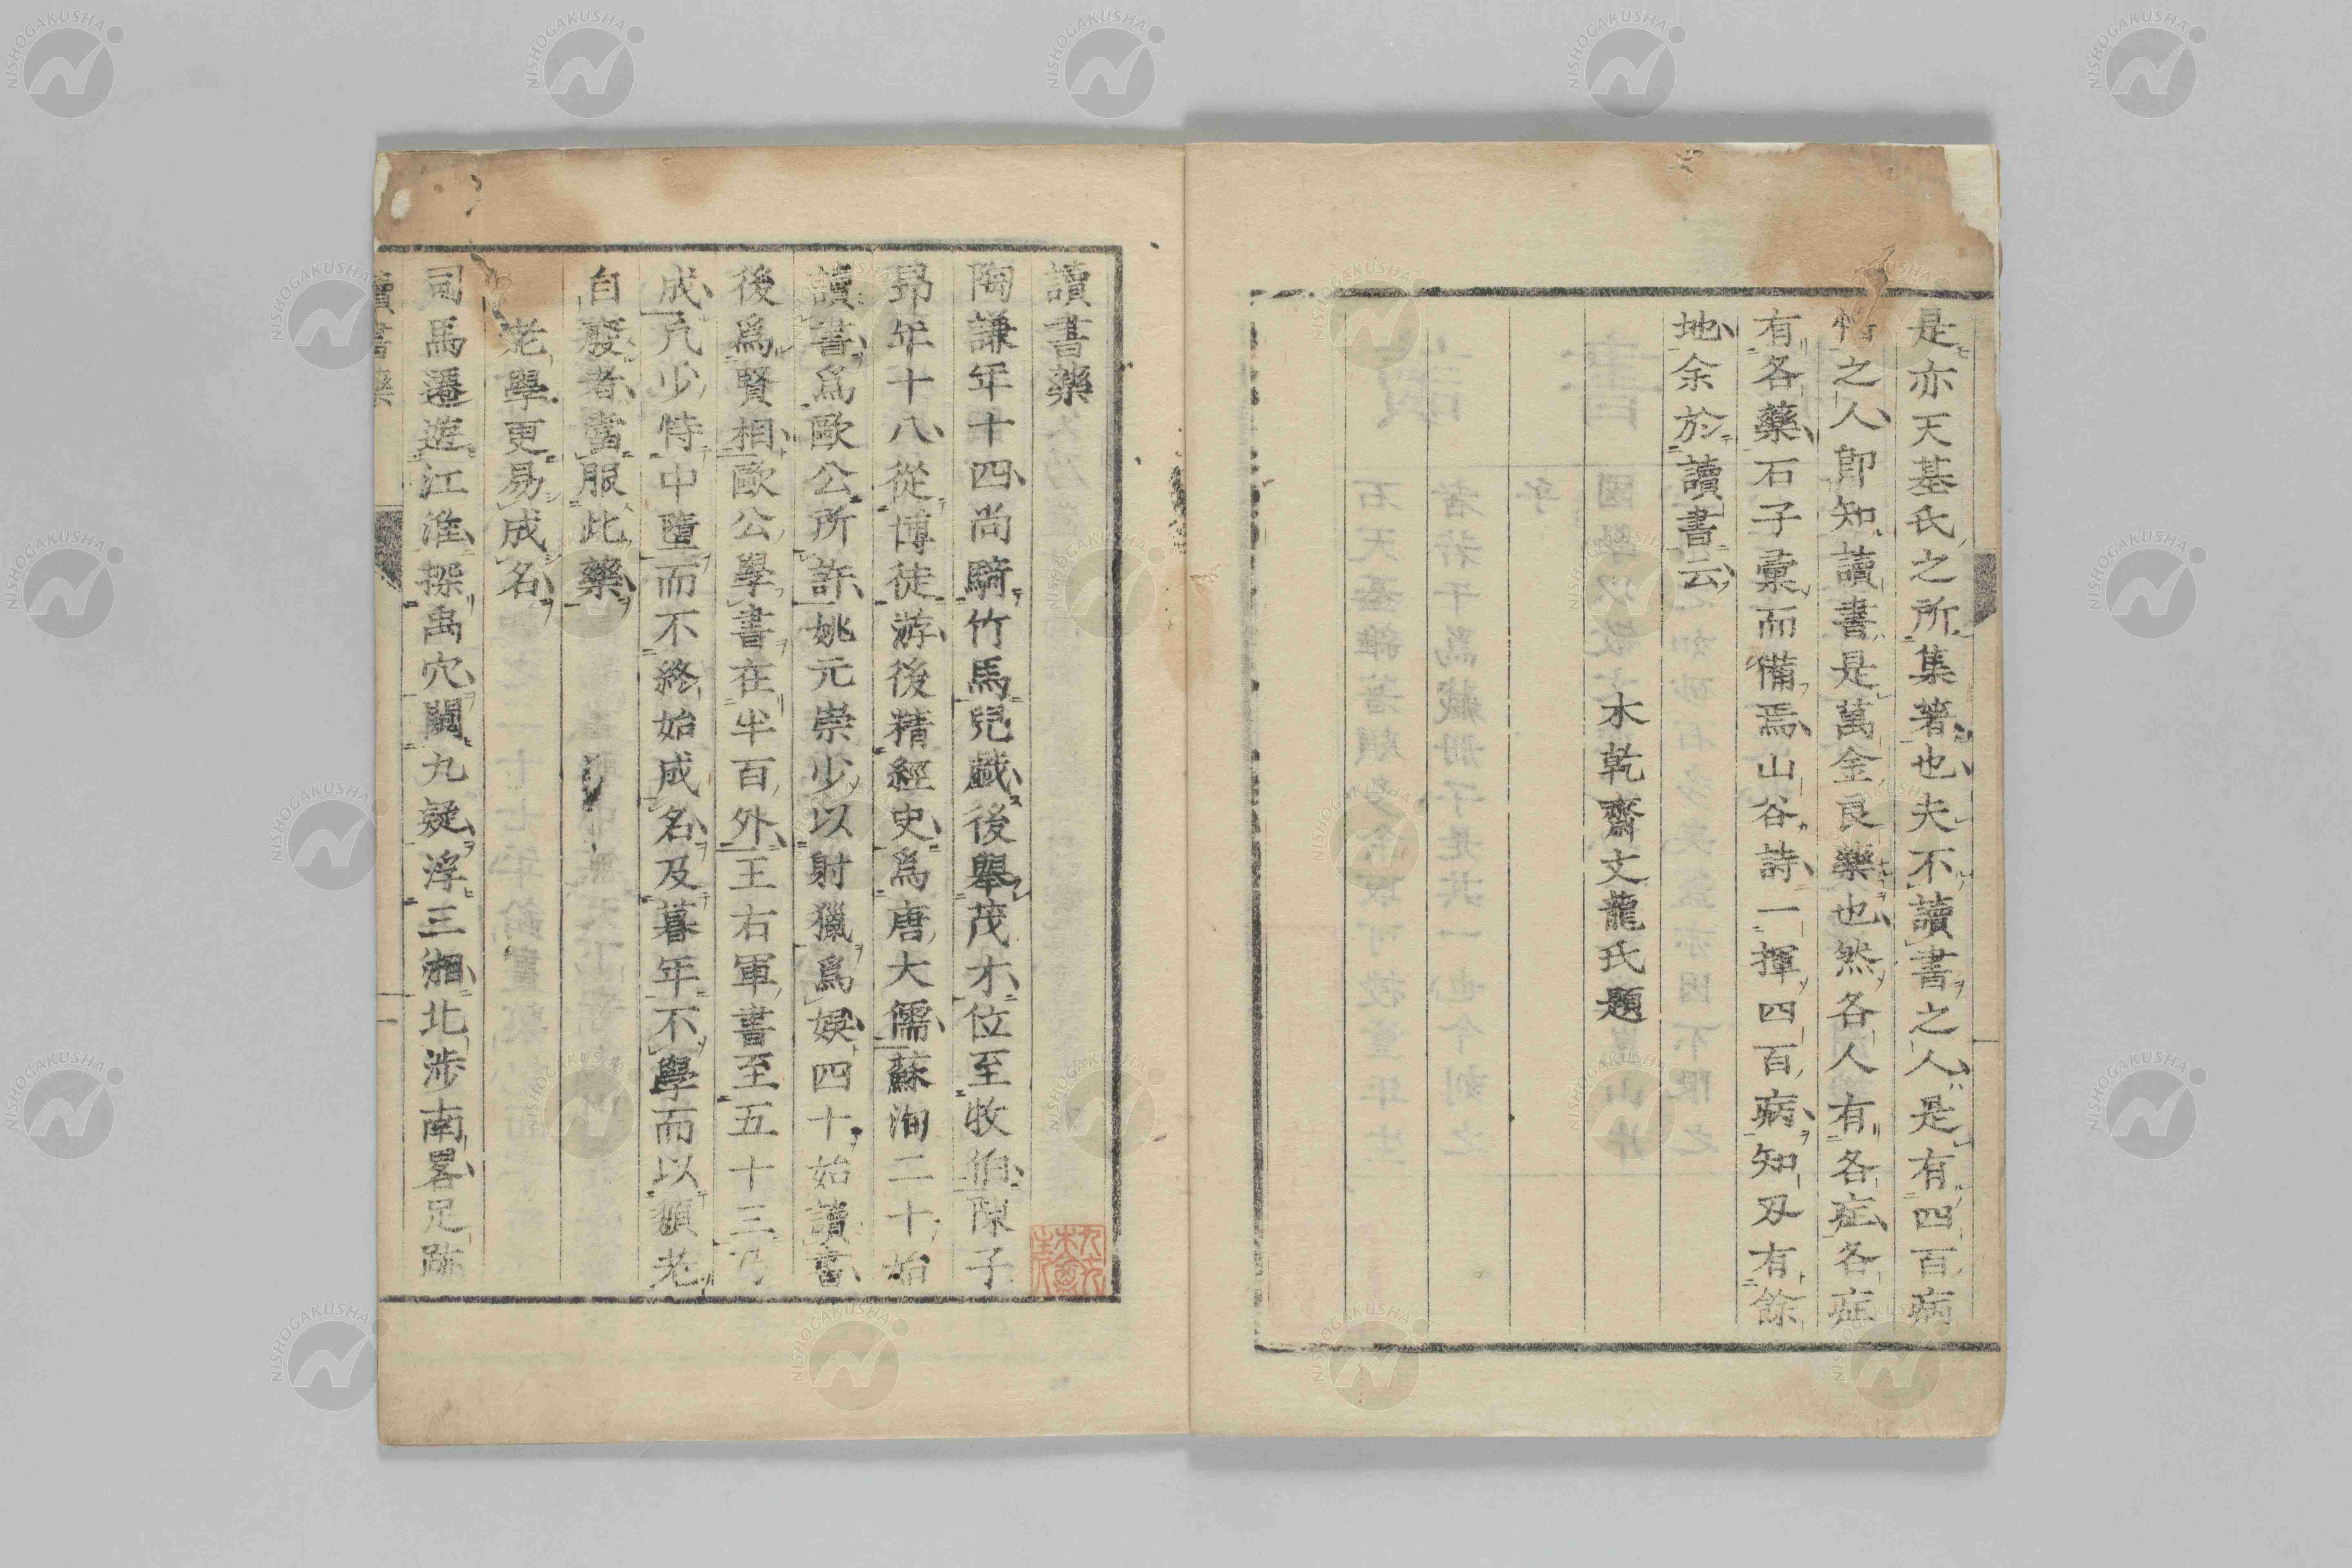 是亦天基氏之所集著也夫不讀書之人是有四百病
之人卽知讀書是萬金良藥也然各人有各症各症
有各藥石子彙而備焉山谷詩一揮四百病知刄有餘
地余於讀書云
木乾齋文龍氏題
讀書藥
陶謙年十四尚騎竹馬兒戲後舉茂才位至牧伯陳子
昂年十八從博徒游後精經史爲唐大儒蘇洵二十始
讀書爲歐公所許姚元崇少以射獵爲娛四十始讀書
後爲賢相歐公學書在半百外王右軍書至五十三乃
成凡少恃中墮而不終始成名及暮年不學而以頽老
自廢者當服此藥
老學更易成名
司馬遷遊江淮探禹穴闚九疑浮三湘北涉南畧足跡
讀書藥
一
NISHOGAKUSHA